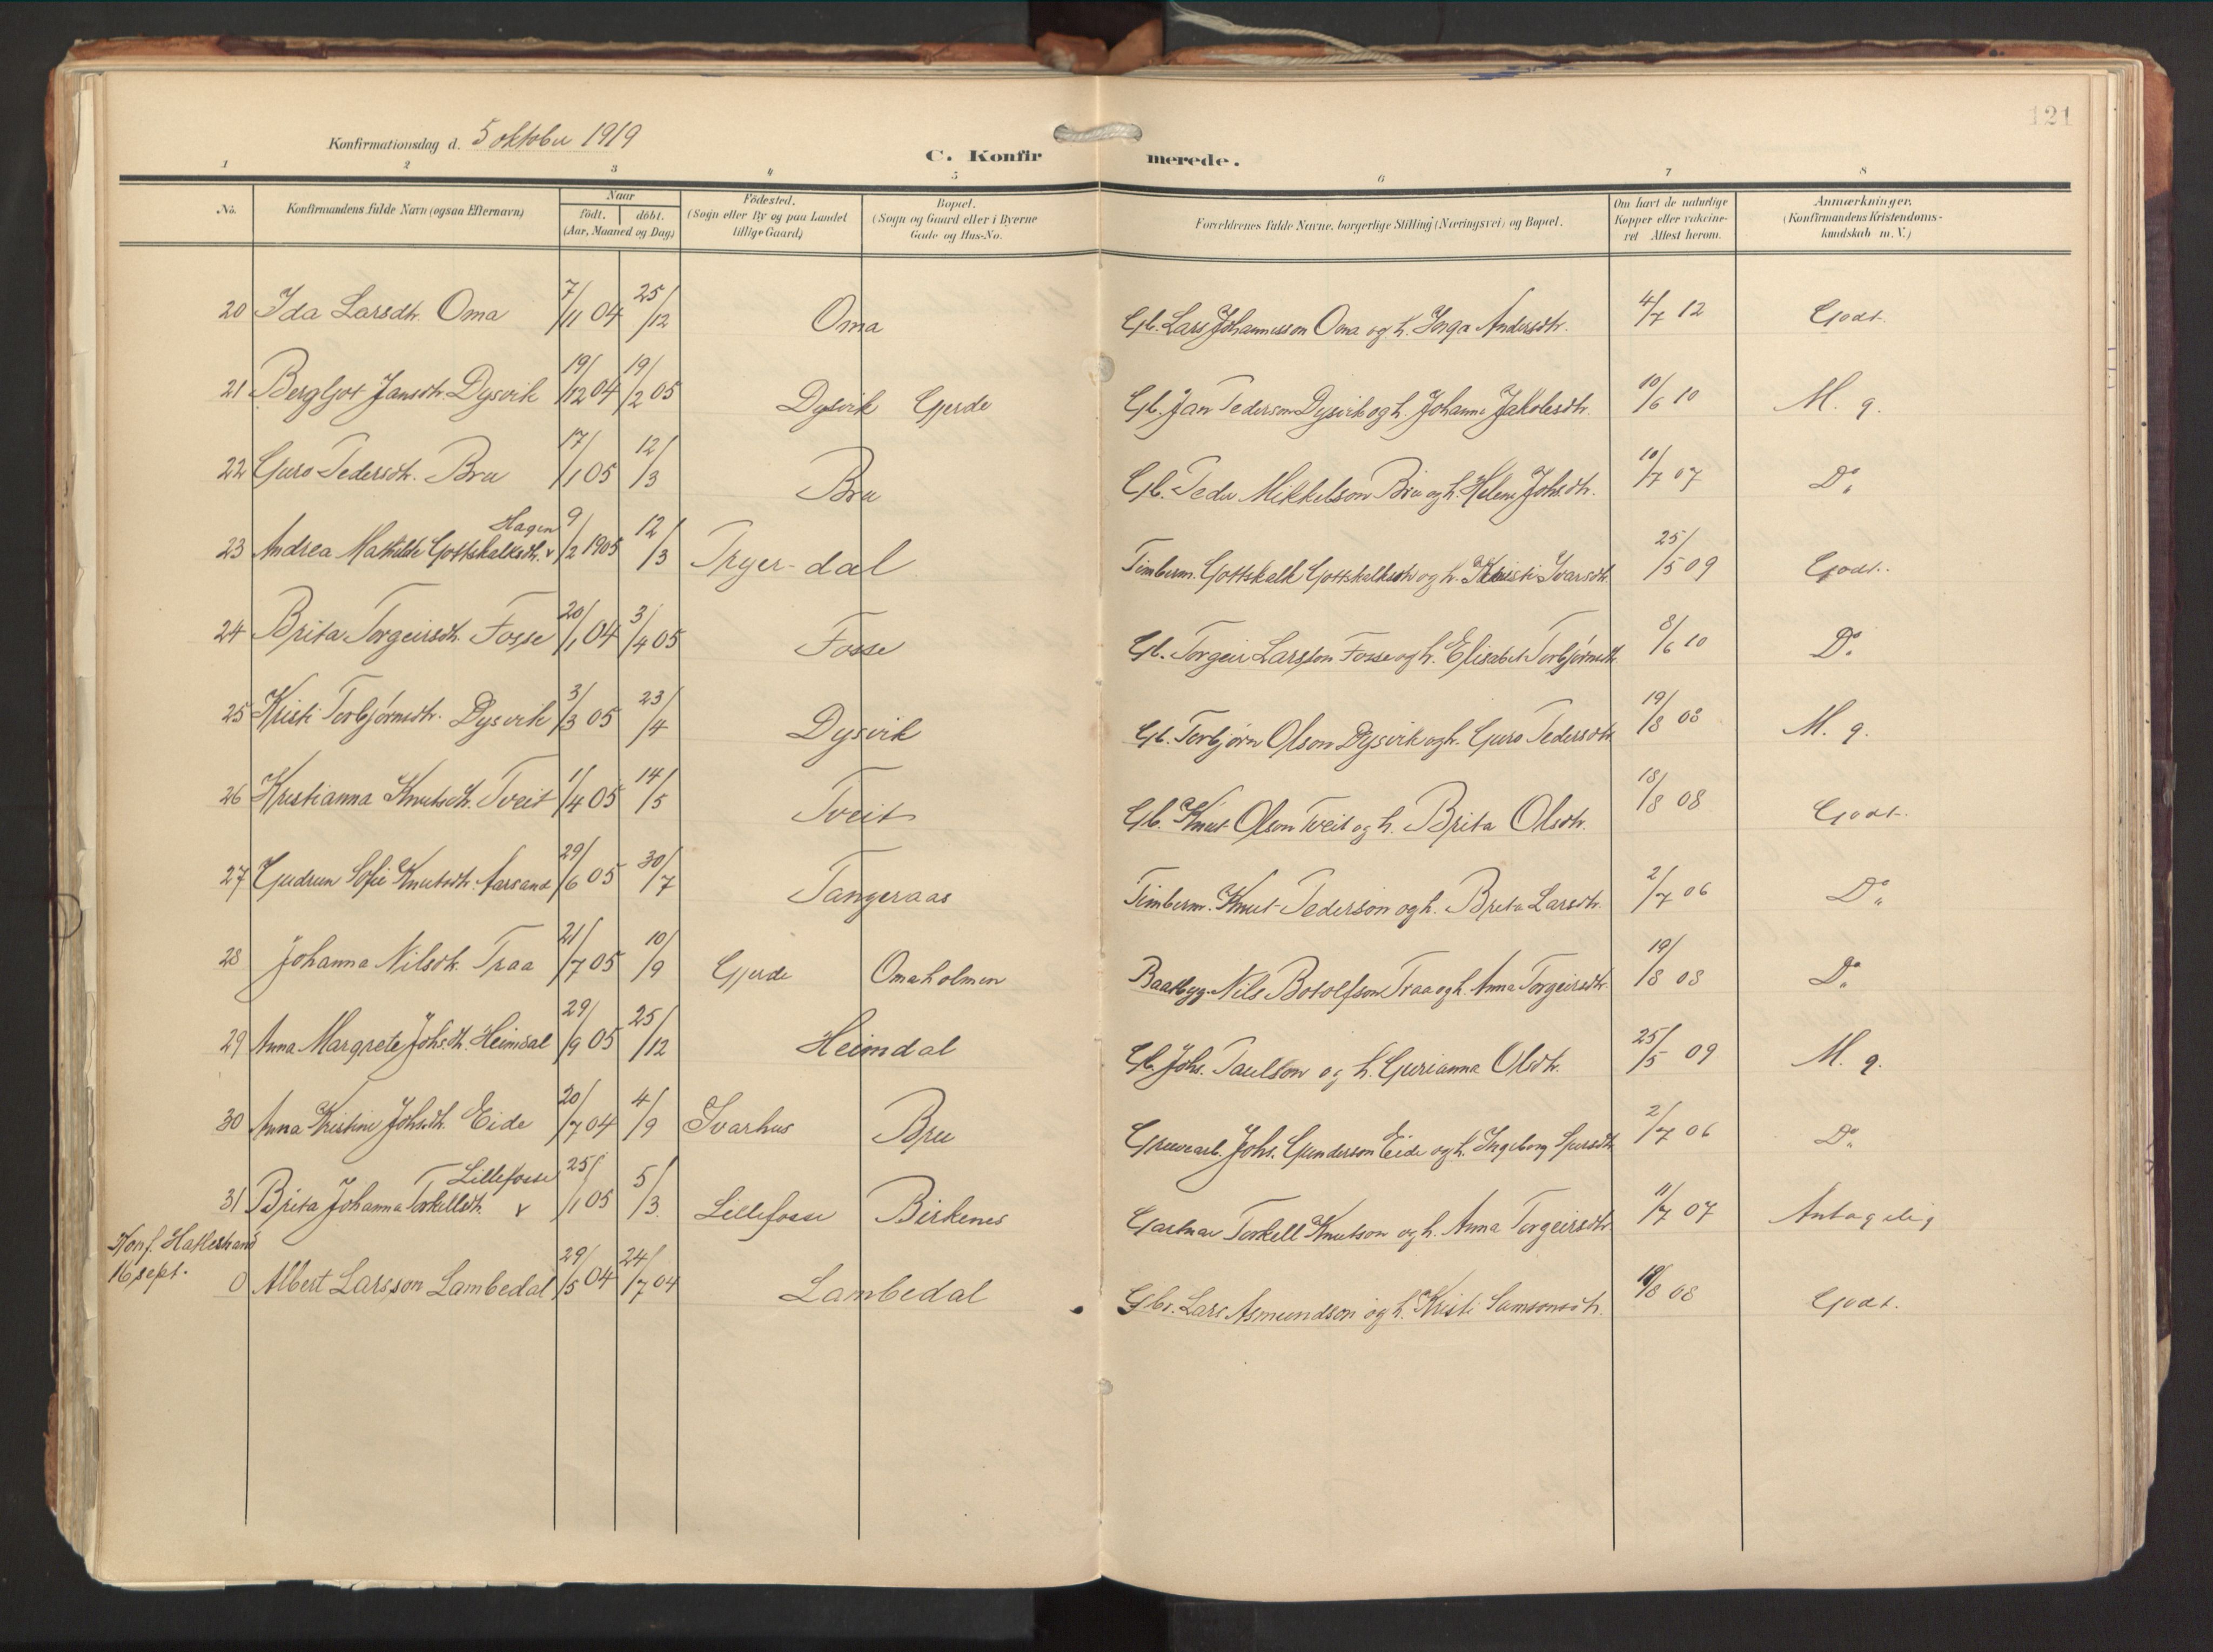 121
Konfirmationsdag d. 5 oktober 1919
C. Konfirmerede.
1 2 3 4 5 6 7 8
No. Konfirmandens fulde Navn (ogsaa Efternavn) Naar født. døbt. (Aar, Maaned og Dag) Fødested. (Sogn eller By og paa Landet tillige Gaard) Bopæl. (Sogn og Gaard eller i Byerne Gade og Hus-No. Forældrenes fulde Navne, borgerlige Stilling (Næringsvei) og Bopæl. Om havt de naturlige Kopper eller vakcineret Attest herom. Anmærkninger. (Konfirmandens Kristendomskundskab m. V.)
20 Ida Larsdtr. Oma 7/11 04 25/12 Oma Gb. Lars Johannesson Oma og h. Inga Andersdtr. 4/7 12 Godt.
21 Bergljot Jansdtr. Dysvik 19/12 04 19/2 05 Dysvik Gjerde Gb. Jan Pederson Dysvik og h. Johanna Jakobsdtr. 10/6 10 M. g.
22 Guro Pedersdtr. Bru 17/1 05 12/3 Bru Gb. Peder Mikkelson Bru og h. Helene Johs.dtr. 10/7 07 Do
23 Andrea Mathilde Gottskalksdtr. v Hagen 9/2 1905 12/3 Tryer-dal Timberm. Gottskalk Gottskalkson og h. Kristi Ivarsdtr. 25/5 09 Godt.
24 Brita Torgeirsdtr. Fosse 20/1 04 3/4 05 Fosse Gb. Torgeir Larsson Fosse og h. Elisabet Torbjørnsdtr. 8/6 10 Do
25 Kristi Torbjørnsdtr. Dysvik 3/3 05 23/4 Dysvik Gb. Torbjørn Olson Dysvik og h. Guro Pedersdtr. 19/8 08 M. g.
26 Kristianna Knutsdtr. Tveit 1/4 05 14/5 Tveit Gb. Knut Olson Tveit og h. Brita Olsdtr. 18/8 08 Godt.
27 Gudrun Sofie Knutsdtr. Aarsand 29/6 05 30/7 Tangeraas Timberm. Knut Pederson og h. Brita Larsdtr. 2/7 06 Do
28 Johanna Nilsdtr. Traa 21/7 05 10/9 Gjerde Omaholmen Baatbyg. Nils Botolfson Traa og h. Anna Torgeirsdtr. 19/8 08 Do
29 Anna Margrete Johs.dtr. Heimdal 29/9 05 25/12 Heimdal Gb. Johs. Paulson og h. Gurianna Olsdtr. 25/5 09 M. g.
30 Anna Kristine Johs.dtr. Eide 20/7 04 4/9 Ivarhus Bru Gruvearb. Johs. Gunderson Eide og h. Ingeborg Sjursdtr. 2/7 06 Do
31 Brita Johanna Torkellsdtr. v Lillefosse 25/1 05 5/3 Lillefosse Birkenes Gartnar Torkell Knutson og h. Anna Torgeirsdtr. 11/7 07 Antagelig
Konf. Hatlestrand 16 sept.
0 Albert Larsson Lambedal 29/5 04 24/7 04 Lambedal Gbr. Lars Asmundson og h. Kristi Samsonsdtr. 18/8 08 Godt.